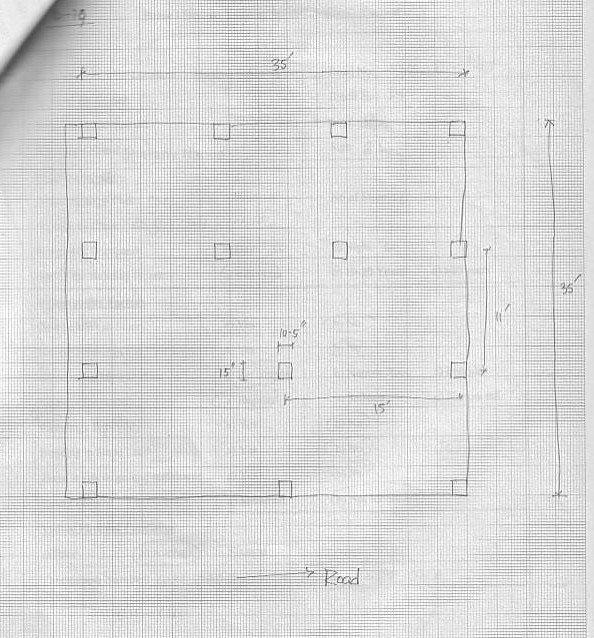 35'
35'
11'
10.5"
15"
15'
Road